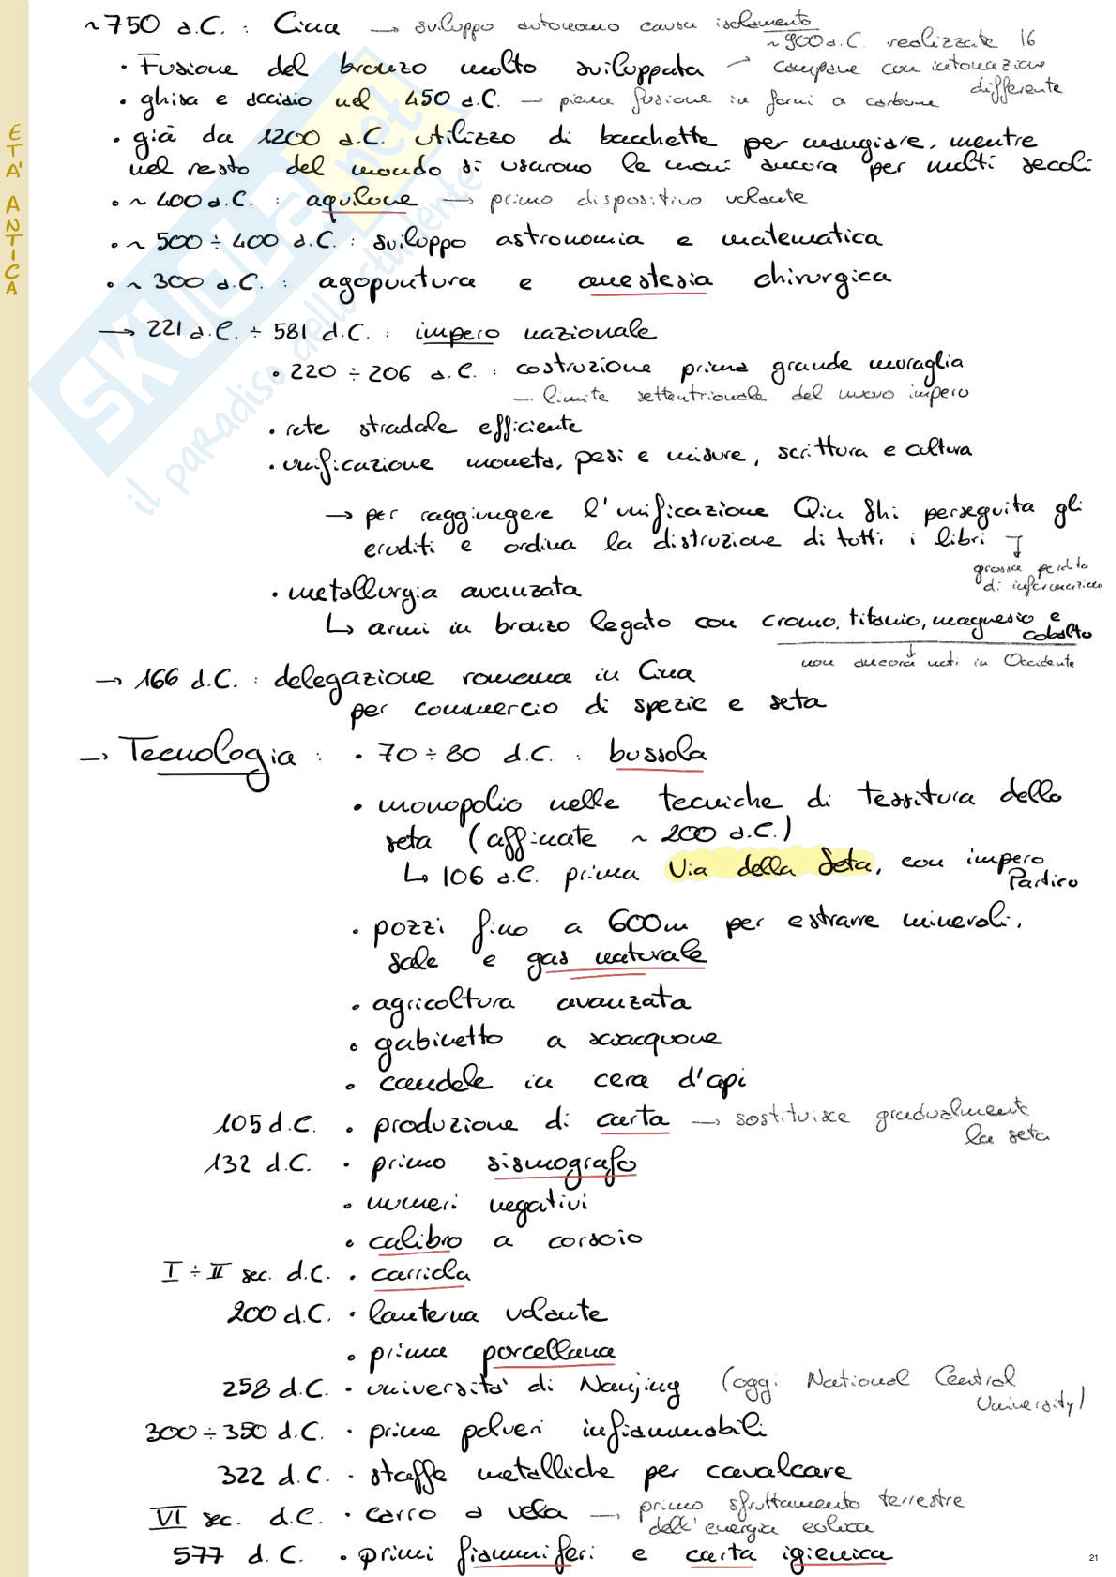 ETÀ ANTICA
~750 a.C. : Cina → sviluppo autonomo causa isolamento
~900 a.C. realizzate 16
• Fusione del bronzo molto sviluppata → campane con intonazione
differente
• ghisa e acciaio nel 450 a.C. – piena fusione in forni a carbone
• già da 1200 a.C. utilizzo di bacchette per mangiare, mentre
nel resto del mondo si usarono le mani ancora per molti secoli
• ~ 400 a.C. : aquilone → primo dispositivo volante
• ~ 500 ÷ 400 a.C. : sviluppo astronomia e matematica
• ~ 300 a.C. : agopuntura e anestesia chirurgica
→ 221 a.C. ÷ 581 d.C. : impero nazionale
• 220 ÷ 206 a.C. : costruzione prima grande muraglia
– limite settentrionale del nuovo impero
• rete stradale efficiente
• unificazione moneta, pesi e misure, scrittura e cultura
→ per raggiungere l'unificazione Qin Shi perseguita gli
eruditi e ordina la distruzione di tutti i libri →
grossa perdita
di informazioni
• metallurgia avanzata
↳ armi in bronzo legato con cromo, titanio, magnesio e
cobalto
non ancora noti in Occidente
→ 166 d.C. : delegazione romana in Cina
per commercio di spezie e seta
→ Tecnologia : • 70 ÷ 80 d.C. : bussola
• monopolio nelle tecniche di tessitura della
seta (affinate ~ 200 a.C.)
↳ 106 a.C. prima Via della Seta, con impero
Partico
• pozzi fino a 600m per estrarre minerali,
sale e gas naturale
• agricoltura avanzata
• gabinetto a sciacquone
• candele in cera d'api
105 d.C. • produzione di carta → sostituisce gradualmente
la seta
132 d.C. • primo sismografo
• numeri negativi
• calibro a corsoio
I ÷ II sec. d.C. • carriola
200 d.C. • lanterna volante
• prima porcellana
258 d.C. • università di Nanjing (oggi National Central
University)
300 ÷ 350 d.C. • prime polveri infiammabili
322 d.C. • staffe metalliche per cavalcare
VI sec. d.C. • carro a vela → primo sfruttamento terrestre
dell'energia eolica
577 d.C. • primi fiammiferi e carta igienica
21
SKUOLA.net
il paradiso dello studente